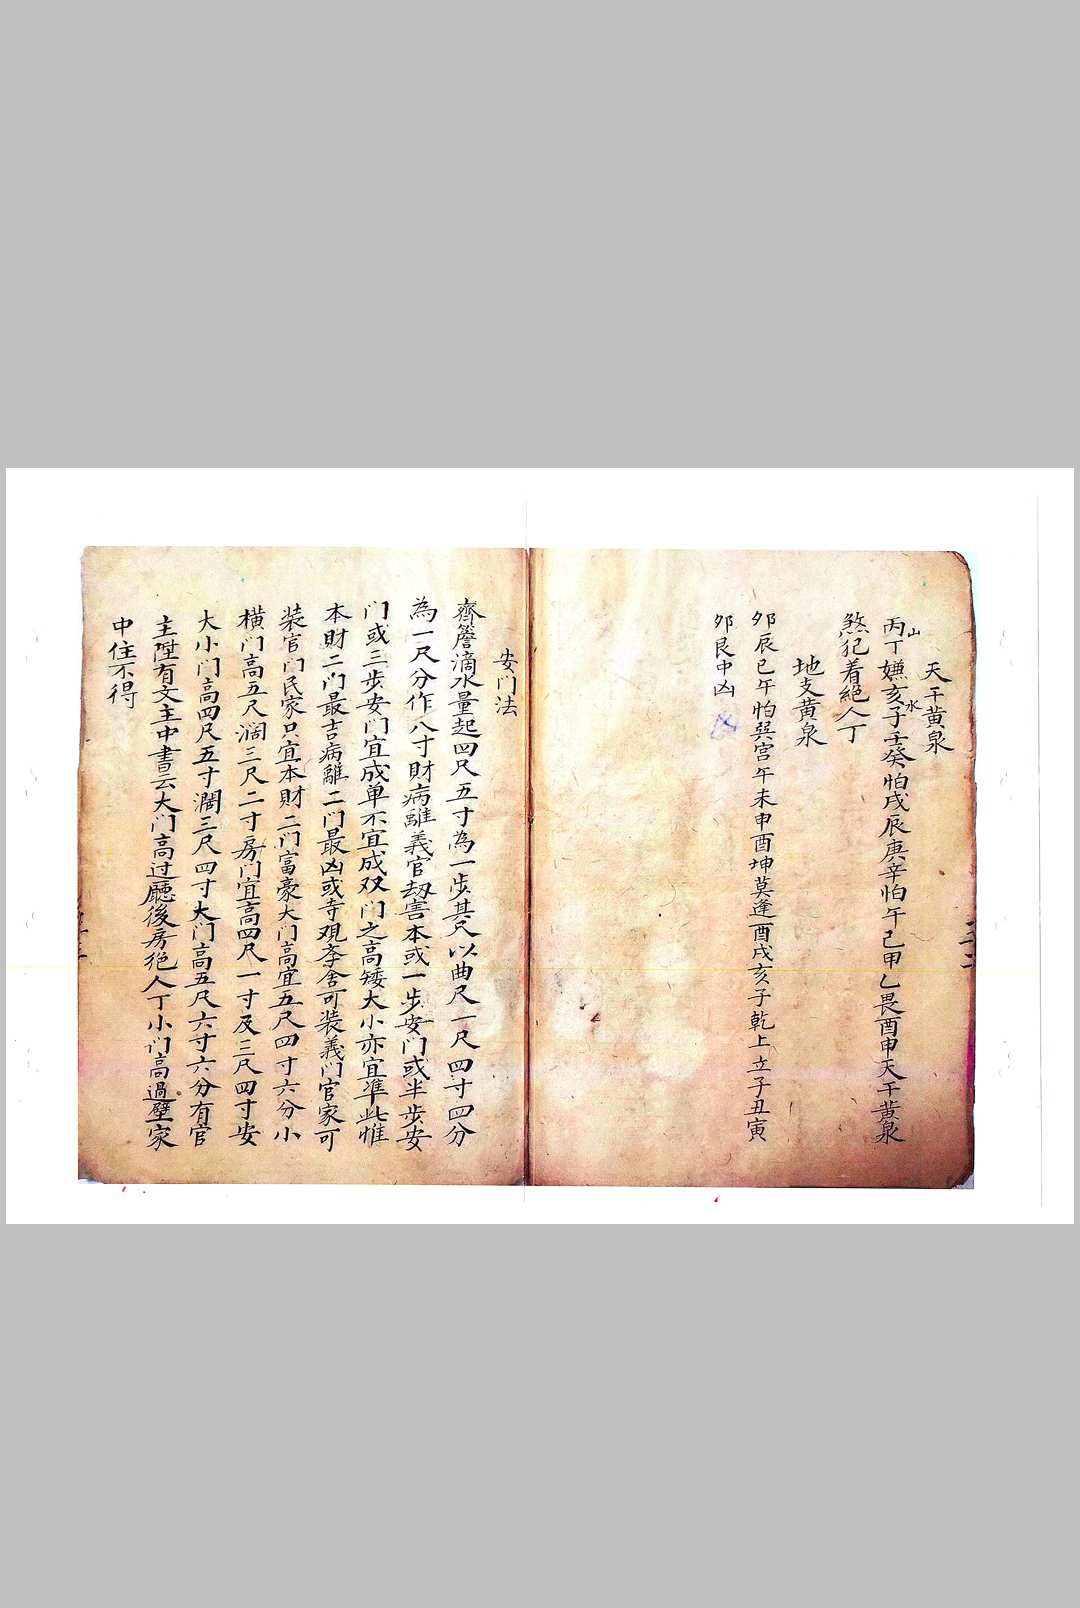 天干黄泉
山 水
丙丁嫌亥子壬癸怕戌辰庚辛怕午己甲乙畏酉申天干黄泉
煞犯着絕人丁
地支黄泉
卯辰巳午怕巽宫午未申酉坤莫逢酉戌亥子乾上立子丑寅
卯艮中凶
安门法
齊簷滴水量起四尺五寸為一步其尺以曲尺一尺四寸四分
為一尺分作八寸財病離義官劫害本或一步安门或半步安
门或三步安门宜成单不宜成双门之高矮大小亦宜準此惟
本財二门最吉病離二门最凶或寺观斎舍可装義门官家可
装官门民家只宜本財二门富豪大门高宜五尺四寸六分小
横门高五尺濶三尺二寸房门宜高四尺一寸及三尺四寸安
大小门高四尺五寸濶三尺四寸大门高五尺六寸六分有官
主陞有文主中書云大门高过廳後房绝人丁小门高過壁家
中住不得